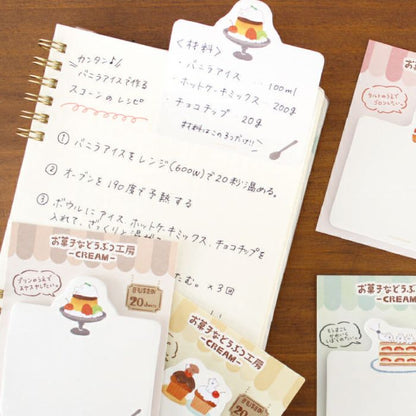 カンタン♪
バニラアイスで作る
スコーンのレシピ
<材料>
・バニラアイス ・・・100ml
・ホットケーキミックス・・200g
・チョコチップ 20g
材料はこの3つだけ!
① バニラアイスをレンジ(600W)で20秒温める。
② オーブンを190度で予熱する
③ ボウルにアイス、ホットケーキミックス、チョコチップを
入れて、ざっくりと混ぜ
たむ。×3回
お菓子などうぶつ工房
-CREAM-
プリンのうえで
スヤスヤしたい。
FUSEN
20sheets
お菓子などうぶつ工房
-CREAM-
FUSEN
20
タルトのうえで
ゴロンしたい。
お菓子などうぶつ工房
-CREAM-